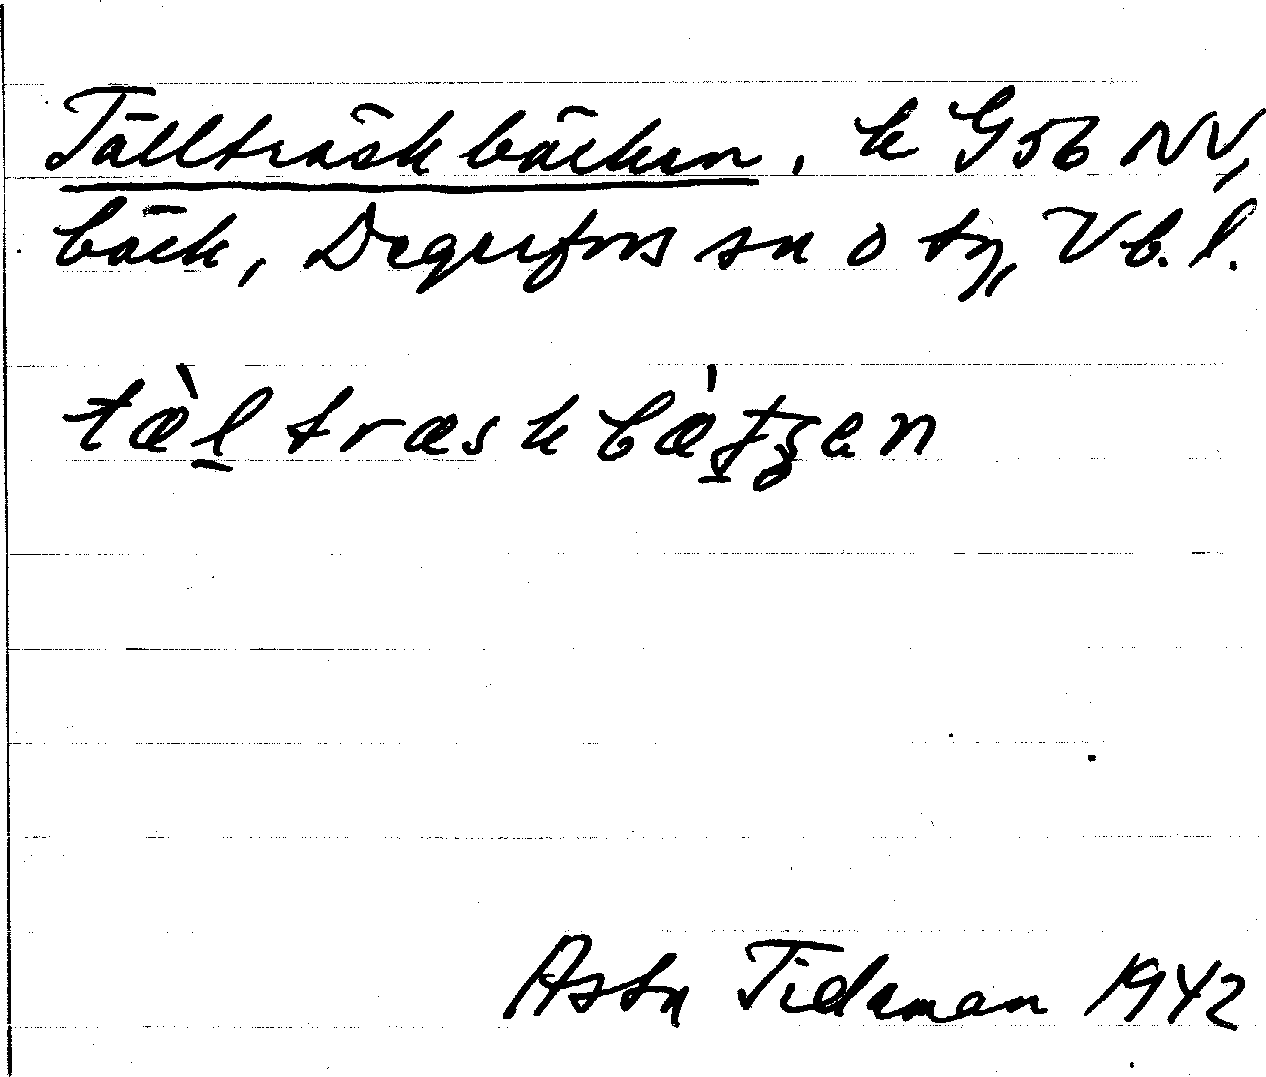 Tällträskbäcken, k G56 NV,
bäck, Degerfors sn o tg, Vb. l.
tæ̀l̲træskbæ̀t̲ʒen
Asta Tideman 1942